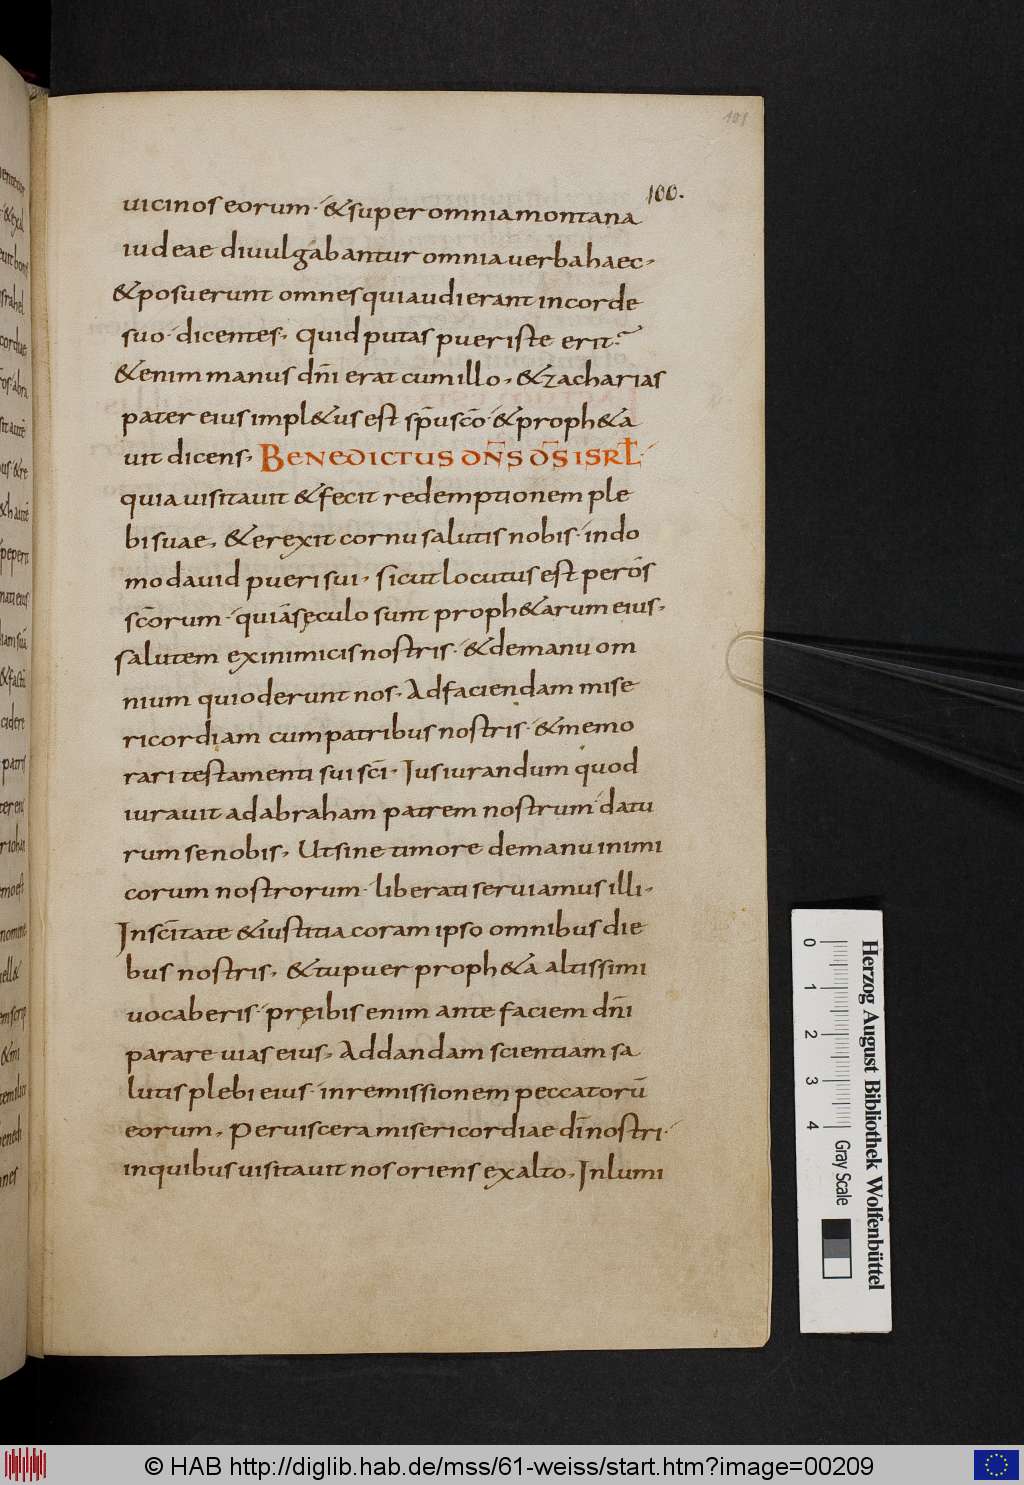 101
100.
uicinos eorum· & super omnia montana
iudeae diuulgabantur omnia uerba haec·
& posuerunt omnes qui audierant in corde
suo· dicentes, quid putas puer iste erit?
& enim manus dn̄i erat cum illo, & zacharias
pater eius impl&us est sp̄u sc̄o· & proph&a
uit dicens, BENEDICTUS DN̄S D̄S ISRL̄·
quia uisitauit & fecit redemptionem ple
bi suae, & erexit cornu salutis nobis· in do
mo dauid pueri sui, sicut locutus est per os̄
sc̄orum· qui ā sęculo sunt proph&arum eius,
salutem ex inimicis nostris· & de manu om
nium qui oderunt nos· Ad faciendam mise
ricordiam cum patribus nostris· & memo
rari testamenti sui sc̄i· Iusiurandum quod
iurauit ad abraham patrem nostrum· datu
rum se nobis, Ut sine timore de manu inimi
corum nostrorum· liberati seruiamus illi,
In sc̄itate & iustitia coram ipso omnibus die
bus nostris, & tu puer proph&a altissimi
uocaberis· pręibis enim ante faciem dn̄i
parare uias eius, Ad dandam scientiam sa
lutis plebi eius· in remissionem peccatorū
eorum, Per uiscera misericordiae dī nostri·
in quibus uisitauit nos oriens ex alto, In lumi
Herzog August Bibliothek Wolfenbüttel
0 1 2 3 4
Gray Scale
© HAB http://diglib.hab.de/mss/61-weiss/start.htm?image=00209